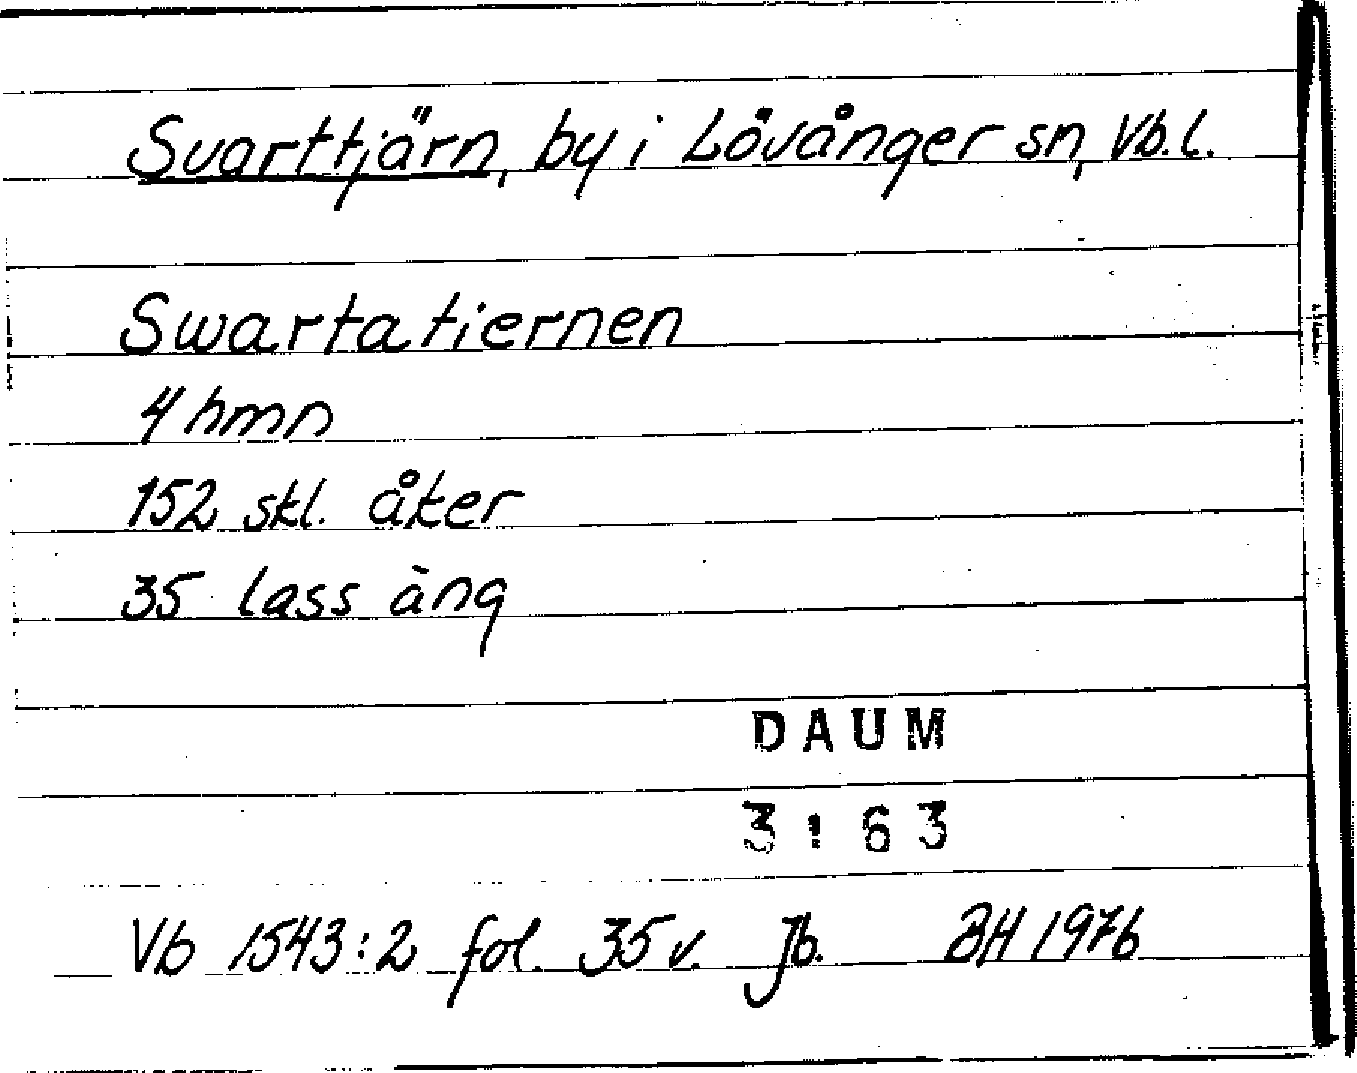 Svarttjärn, by i Lövånger sn, Vb.l.
Swartatiernen
4 hmn
152 skl. åker
35 lass äng
DAUM
3:63
Vb 1543:2 fol. 35 v. Jb. BH 1976